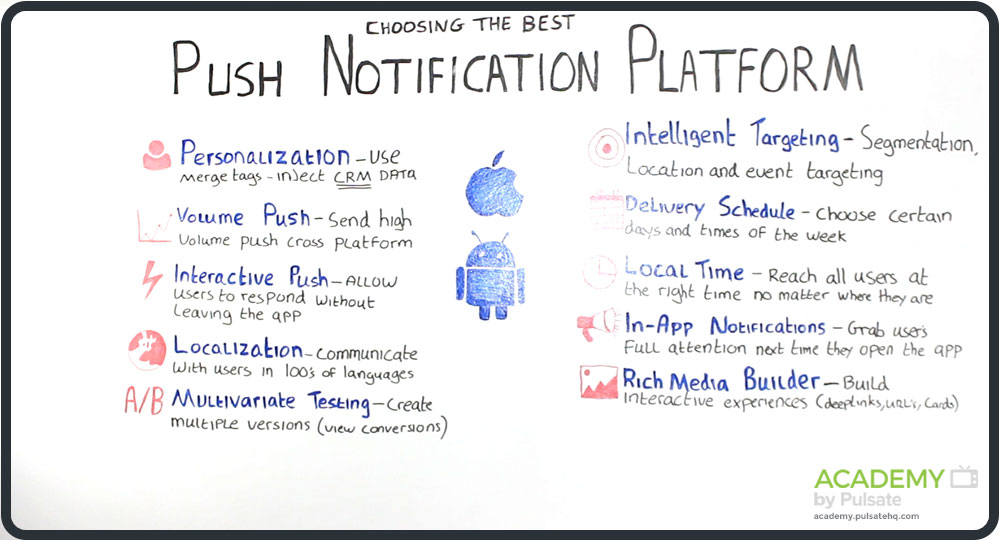 CHOOSING THE BEST
PUSH NOTIFICATION PLATFORM
Personalization – USE
Merge tags – inject CRM DATA
Volume Push – Send high
Volume push cross platform
Interactive Push – ALLOW
users to respond without
leaving the app
Localization – Communicate
With users in 100's of languages
A/B Multivariate Testing – Create
multiple versions (view conversions)
Intelligent Targeting – Segmentation,
Location and event targeting
Delivery Schedule – Choose certain
days and times of the week
Local Time – Reach all users at
the right time no matter where they are
In-App Notifications – Grab users
Full attention next time they open the app
Rich Media Builder – Build
interactive experiences (deeplinks, URL's, Cards)
ACADEMY
by Pulsate
academy.pulsatehq.com